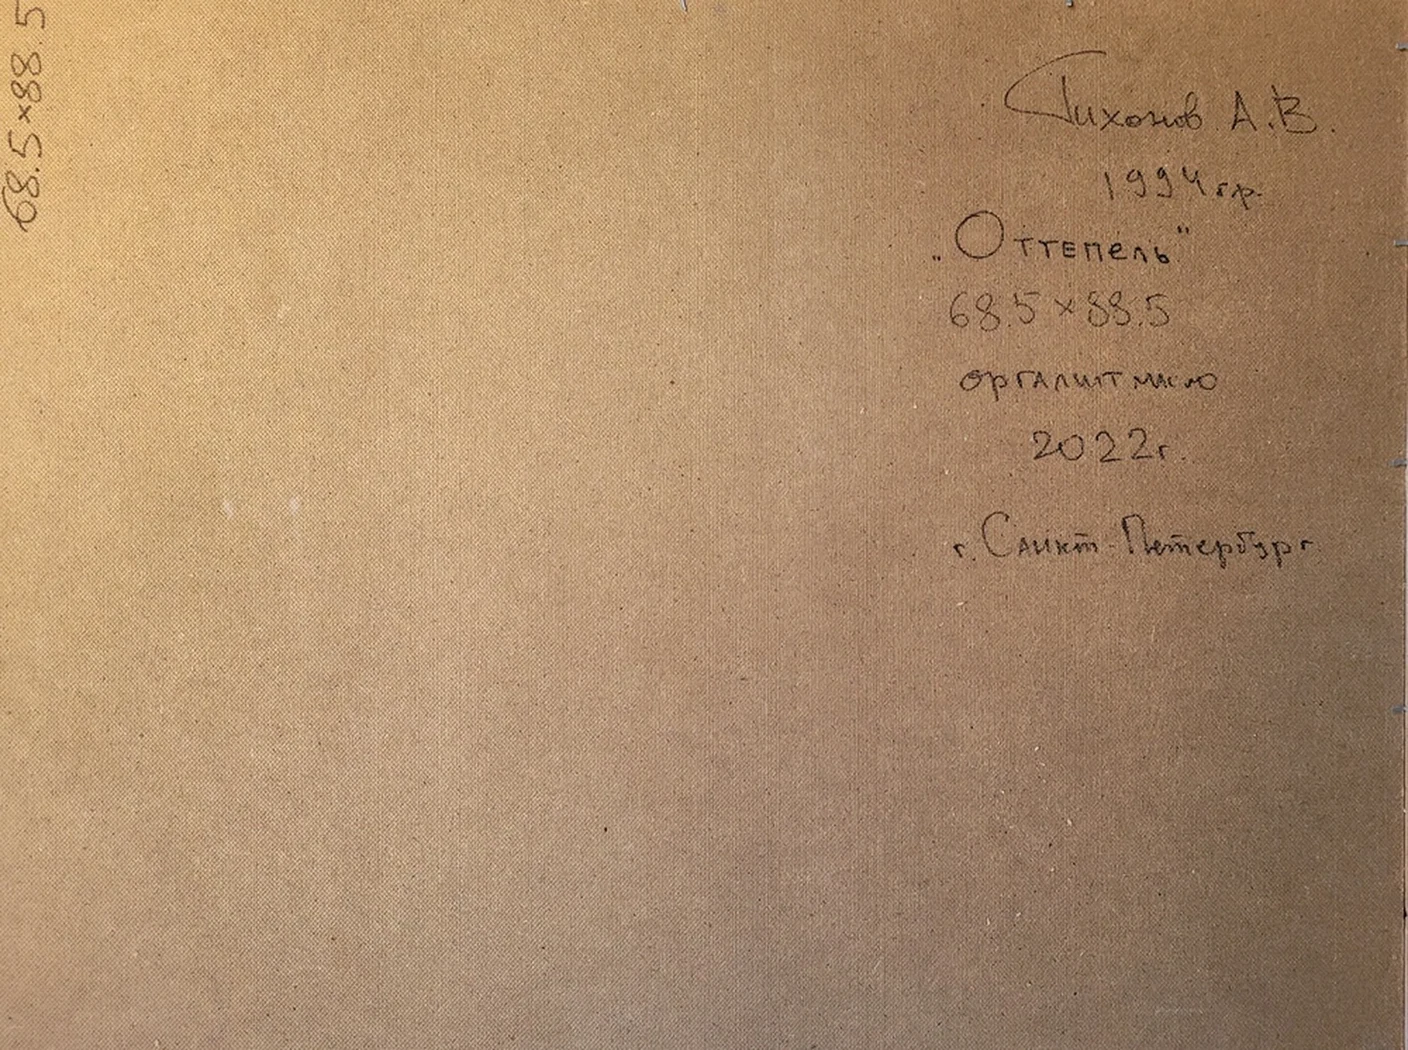 68.5×88.5
Тихонов А.В.
1994 гр.
„Оттепель"
68.5×88.5
оргалит масло
2022г.
г. Санкт-Петербург